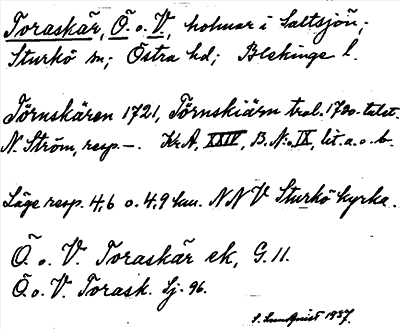 Toraskär, Ö. o. V., holmar i Saltsjön;
Sturkö sn; Östra hd; Blekinge l.
Törnskären 1721, Törnskiärn trol. 1700-talet.
N. Ström, resp. –. Kr.A, XXIV, B. N:o IX, lit. a. o. b.
Läge resp. 4,6 o. 4.9 km. NNV Sturkö kyrka.
Ö. o. V. Toraskär ek, G. 11.
Ö. o. V. Torask. Sj. 96.
S. Lundquist 1937.